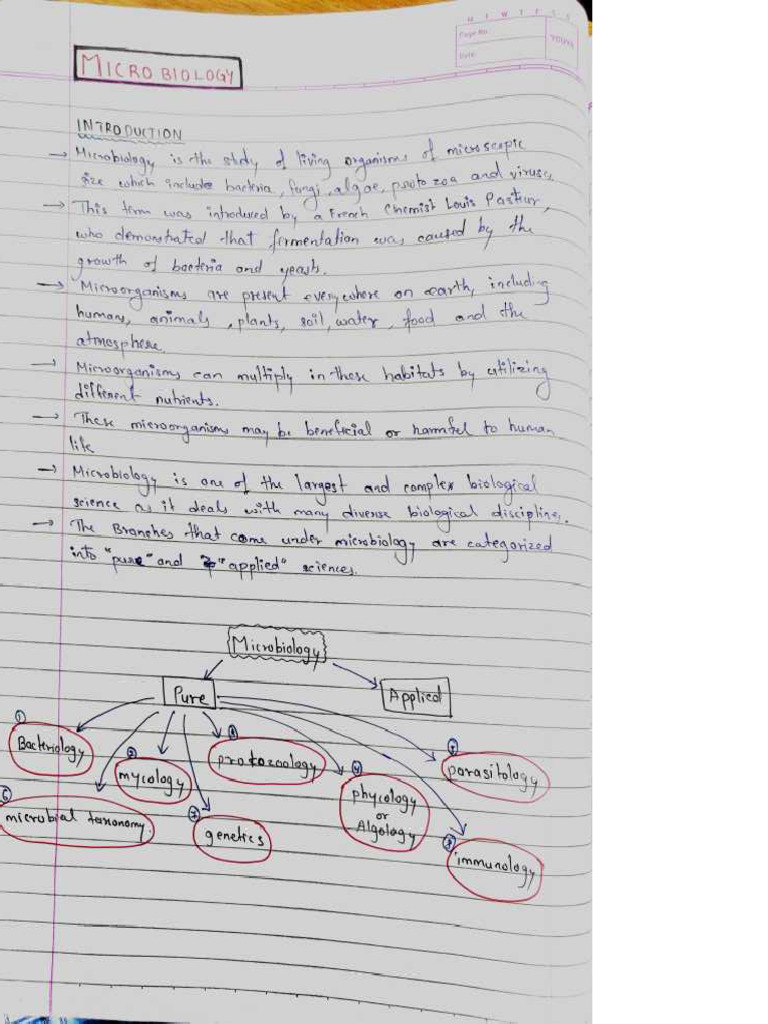 M T W T F S S
Page No.:
Date:
YOUVA
MICROBIOLOGY
INTRODUCTION
→ Microbiology is the study of living organisms of microscopic
size which include bacteria, fungi, algae, protozoa and viruses
→ This term was introduced by a French Chemist Louis Pasteur,
who demonstrated that fermentation was caused by the
growth of bacteria and yeasts.
→ Microorganisms are present everywhere on earth, including
humans, animals, plants, soil, water, food and the
atmosphere.
→ Microorganisms can multiply in these habitats by utilizing
different nutrients.
→ These microorganisms may be beneficial or harmful to human
life
→ Microbiology is one of the largest and complex biological
science as it deals with many diverse biological discipline.
→ The Branches that come under microbiology are categorized
into "pure" and "applied" sciences.
Microbiology
Pure
Applied
① Bacteriology
② mycology
③ protozoology
④ phycology
or
Algology
⑤ parasitology
⑥ microbial taxonomy.
⑦ genetics
⑧ immunology